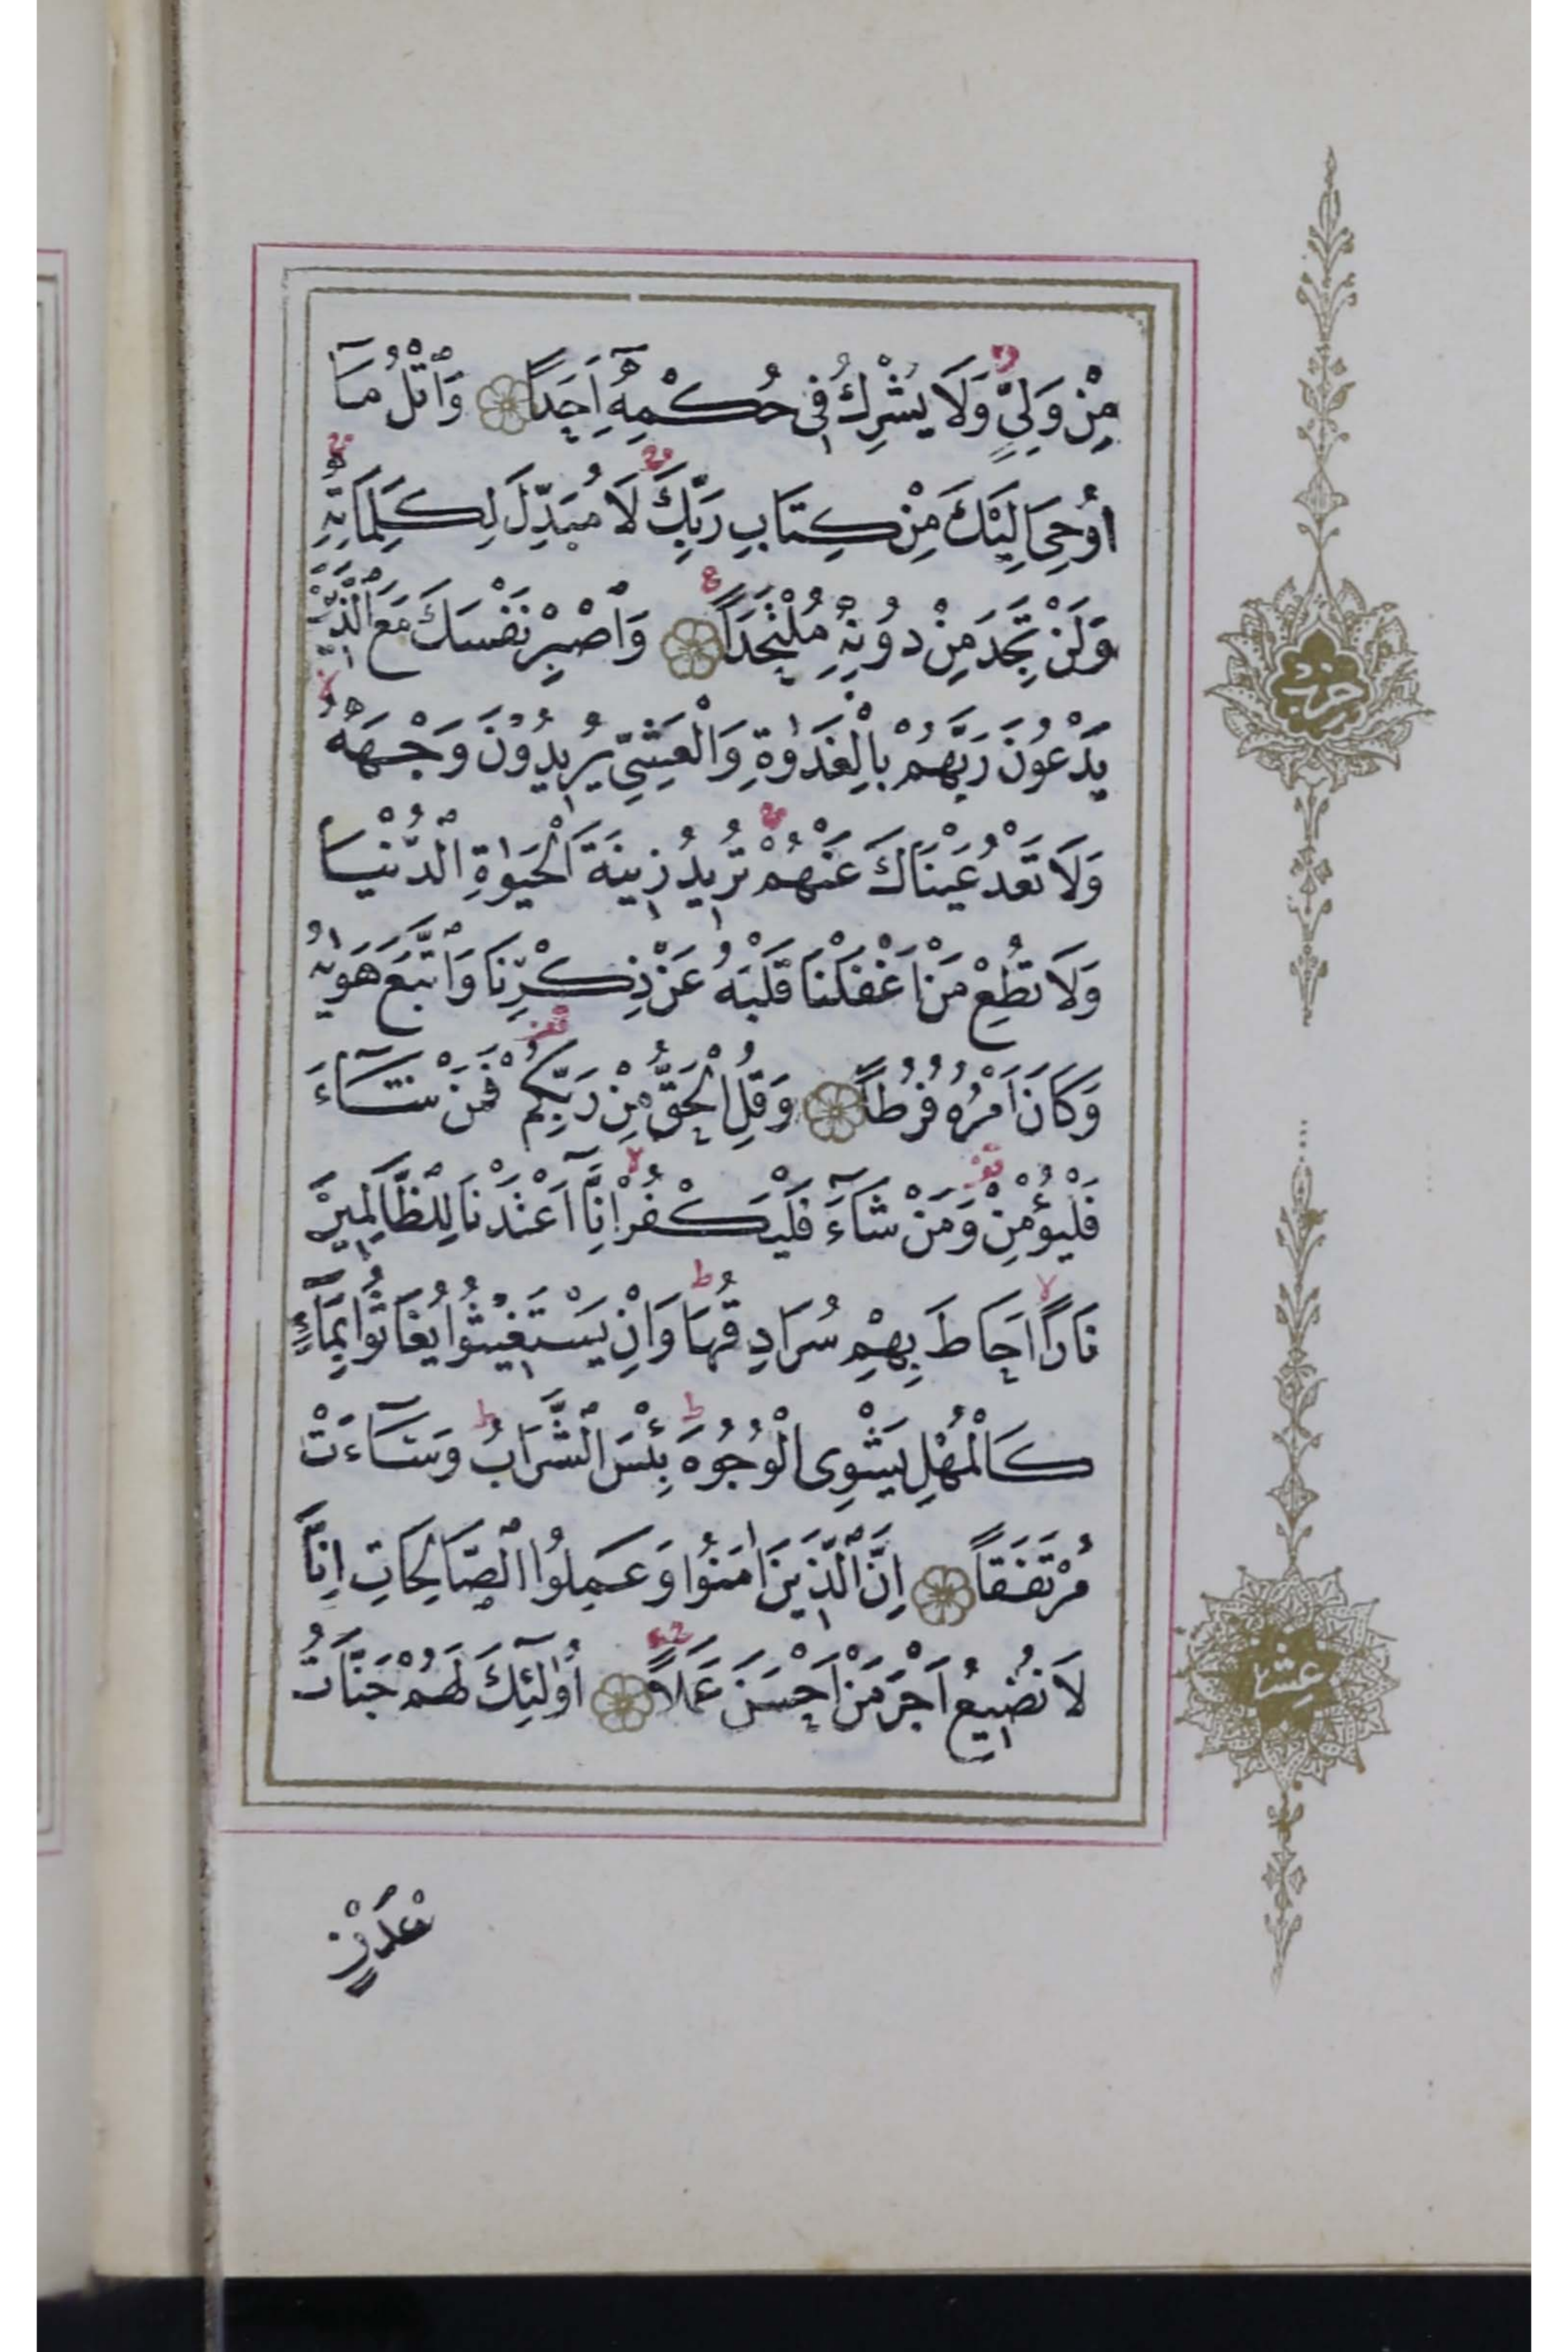 مِنْ وَلِيٍّ وَلَا يُشْرِكُ فِى حُكْمِهِٓ اَحَدًا وَاتْلُ مَٓا
اُو۫حِىَ اِلَيْكَ مِنْ كِتَابِ رَبِّكَ لَا مُبَدِّلَ لِكَلِمَاتِهِ
وَلَنْ تَجِدَ مِنْ دُونِهِ مُلْتَحَدًا وَاصْبِرْ نَفْسَكَ مَعَ الَّذِينَ
يَدْعُونَ رَبَّهُمْ بِالْغَدٰوةِ وَالْعَشِىِّ يُرِيدُونَ وَجْهَهُ
وَلَا تَعْدُ عَيْنَاكَ عَنْهُمْ تُرِيدُ زِينَةَ الْحَيٰوةِ الدُّنْيَا
وَلَا تُطِعْ مَنْ اَغْفَلْنَا قَلْبَهُ عَنْ ذِكْرِنَا وَاتَّبَعَ هَوٰيهُ
وَكَانَ اَمْرُهُ فُرُطًا وَقُلِ الْحَقُّ مِنْ رَبِّكُمْ فَمَنْ شَٓاءَ
فَلْيُؤْمِنْ وَمَنْ شَٓاءَ فَلْيَكْفُرْ اِنَّٓا اَعْتَدْنَا لِلظَّالِمِينَ
نَارًا اَحَاطَ بِهِمْ سُرَادِقُهَا وَاِنْ يَسْتَغِيثُوا يُغَاثُوا بِمَٓاءٍ
كَالْمُهْلِ يَشْوِى الْوُجُوهَ بِئْسَ الشَّرَابُ وَسَٓاءَتْ
مُرْتَفَقًا اِنَّ الَّذِينَ اٰمَنُوا وَعَمِلُوا الصَّالِحَاتِ اِنَّا
لَا نُضِيعُ اَجْرَ مَنْ اَحْسَنَ عَمَلًا اُو۬لٰٓئِكَ لَهُمْ جَنَّاتُ
عَدْنٍ
حزب
عشر